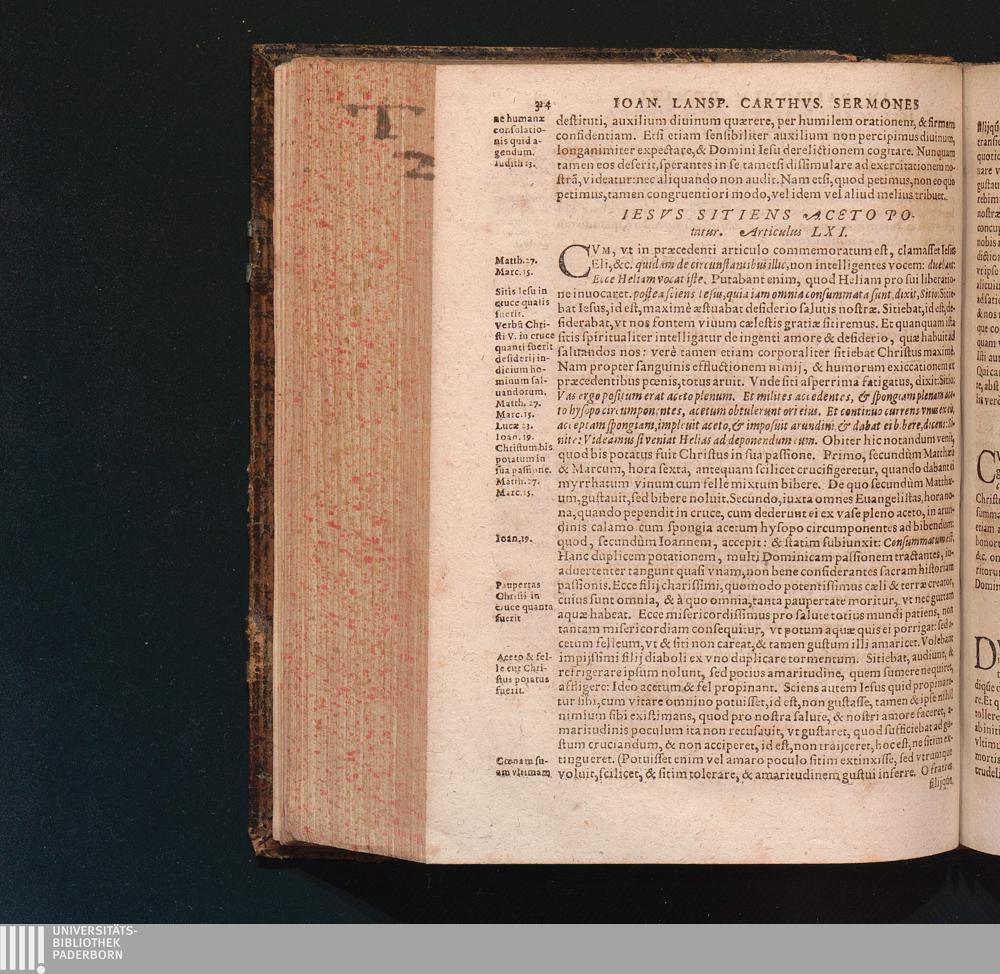 314 IOAN. LANSP. CARTHVS. SERMONES
destituti, auxilium diuinum quærere, per humilem orationem, & firmam
confidentiam. Etsi etiam sensibiliter auxilium non percipimus diuinum,
longanimiter expectare, & Domini Iesu derelictionem cogitare. Nunquam
tamen eos deserit, sperantes in se tametsi dissimulare ad exercitationem no-
strã, videatur: nec aliquando non audit. Nam etsi, quod petimus, non eo quo
petimus, tamen congruentiori modo, vel idem vel aliud melius tribuet.
ne humanæ
consolatio-
nis quid a-
gendum.
Iudith 13.
IESVS SITIENS ACETO PO-
tatur. Articulus LXI.
CVM, vt in præcedenti articulo commemoratum est, clamasset Iesus
Eli, &c. quidam de circunstantibus illuc, non intelligentes vocem: dicebant:
Ecce Heliam vocat iste. Putabant enim, quod Heliam pro sui liberatio-
ne inuocaret. postea sciens Iesus, quia iam omnia consummata sunt, dixit, Sitio: Sitie-
bat Iesus, id est, maximè æstuabat desiderio salutis nostræ. Sitiebat, id est, de-
siderabat, vt nos fontem viuum cælestis gratiæ sitiremus. Et quanquam ista
sitis spiritualiter intelligatur de ingenti amore & desiderio, quæ habuit ad
saluandos nos: verè tamen etiam corporaliter sitiebat Christus maximè.
Nam propter sanguinis effluctionem nimij, & humorum exiccationem et
præcedentibus pœnis, totus aruit. Vnde siti asperrima fatigatus, dixit: Sitio:
Vas ergo positum erat aceto plenum. Et milites accedentes, & spongiam plenam ace-
to hysopo circumponentes, acetum obtulerunt ori eius. Et continuo currens vnus ex eis,
acceptam spongiam, impleuit aceto, & imposuit arundini, & dabat ei bibere, dicens: Si-
nite: Videamus si veniat Helias ad deponendum eum. Obiter hic notandum venit,
quod bis potatus fuit Christus in sua passione. Primo, secundùm Matthæũ
& Marcum, hora sexta, antequam scilicet crucifigeretur, quando dabant ei
myrrhatum vinum cum felle mixtum bibere. De quo secundùm Matthæ-
um, gustauit, sed bibere noluit. Secundo, iuxta omnes Euangelistas, hora no-
na, quando pependit in cruce, cum dederunt ei ex vase pleno aceto, in arun-
dinis calamo cum spongia acetum hysopo circumponentes ad bibendum:
quod, secundùm Ioannem, accepit: & statim subiunxit: Consummatum est.
Hanc duplicem potationem, multi Dominicam passionem tractantes, in-
aduertenter tangunt quasi vnam, non bene considerantes sacram historiam
passionis. Ecce filij charissimi, quomodo potentissimus cæli & terræ creator,
cuius sunt omnia, & à quo omnia, tanta paupertate moritur, vt nec guttam
aquæ habeat. Ecce misericordissimus pro salute totius mundi patiens, non
tantam misericordiam consequitur, vt potum aquæ quis ei porrigat: sed a-
cetum felleum, vt & siti non careat, & tamen gustum illi amaricet. Volebant
impijssimi filij diaboli ex vno duplicare tormentum. Sitiebat, audiunt, &
refrigerare ipsum nolunt, sed potius amaritudine, quem sumere nequiret,
affligere: Ideo acetum & fel propinant. Sciens autem Iesus quid propinare-
tur sibi, cum vitare omnino potuisset, id est, non gustasse, tamen & ipse nihil
nimium sibi existimans, quod pro nostra salute, & nostri amore faceret, a-
maritudinis poculum ita non recusauit, vt gustaret, quod sufficiebat ad gu-
stum cruciandum, & non acciperet, id est, non traijceret, hoc est, ne sitim ex-
tingueret. (Potuisset enim vel amaro poculo sitim extinxisse, sed vtrumque
voluit, scilicet, & sitim tolerare, & amaritudinem gustui inferre. O fratres
filijque
Matth. 27.
Marc. 15.
Sitis Iesu in
cruce qualis
fuerit.
Verbũ Chri-
sti V. in cruce
quanti fuerit
desiderij in-
dicium ho-
minum sal-
uandorum.
Matth. 27.
Marc. 15.
Lucæ 23.
Ioan. 19.
Christum bis
potatum in
sua passione.
Matth. 27.
Marc. 15.
Ioan. 19.
Paupertas
Christi in
cruce quanta
fuerit
Aceto & fel-
le cur Chri-
stus potatus
fuerit.
Cœnam su-
am vltimam
UNIVERSITÄTS-
BIBLIOTHEK
PADERBORN